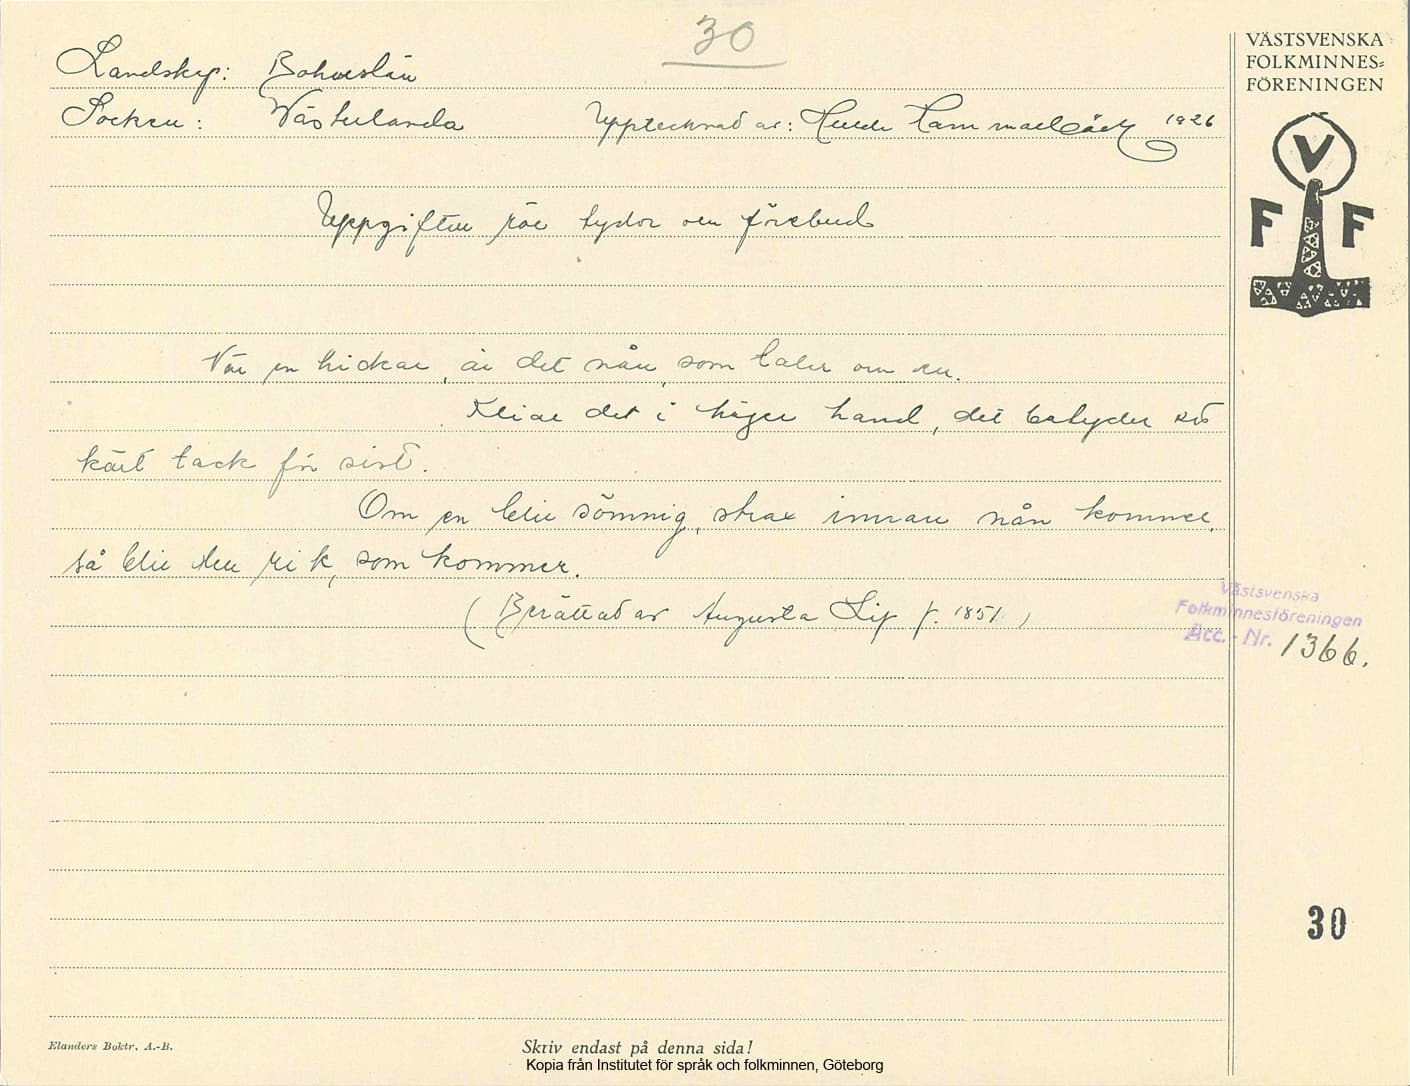 30
Landskap: Bohuslän
Socken: Västerlanda Upptecknad av: Hulda Hammarbäck 1926
Uppgiften rör tydor och förebud
När en hickar, är det nån, som talar om en.
Kliar det i höger hand, det betyder ett
kärt tack för sist.
Om en blir sömnig, strax innan nån kommer,
så blir den rik, som kommer.
(Berättad av Augusta Lif f. 1851)
VÄSTSVENSKA
FOLKMINNES=
FÖRENINGEN
V
F F
Västsvenska
Folkminnesföreningen
Acc. - Nr. 1366.
30
Elanders Boktr. A.-B.
Skriv endast på denna sida!
Kopia från Institutet för språk och folkminnen, Göteborg